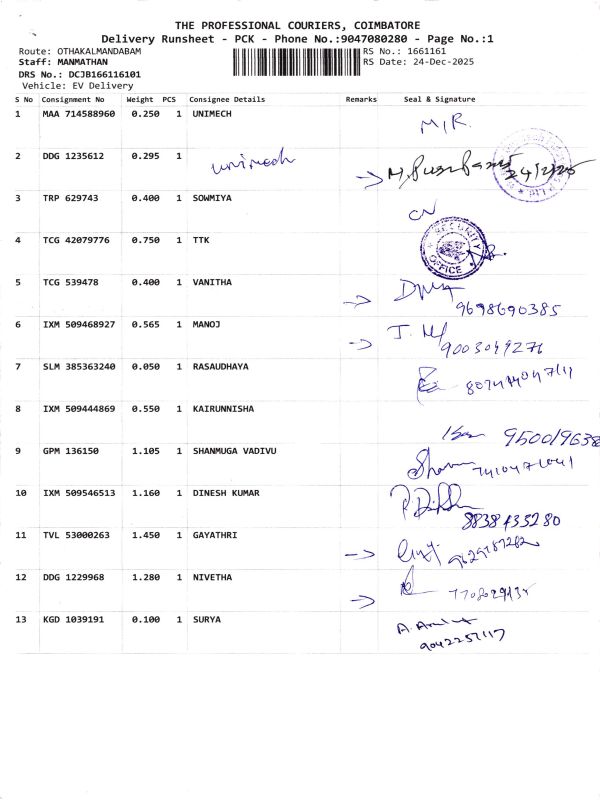 THE PROFESSIONAL COURIERS, COIMBATORE
Delivery Runsheet - PCK - Phone No.:9047080280 - Page No.:1
Route: OTHAKALMANDABAM RS No.: 1661161
Staff: MANMATHAN RS Date: 24-Dec-2025
DRS No.: DCJB166116101
Vehicle: EV Delivery
S No Consignment No Weight PCS Consignee Details Remarks Seal & Signature
1 MAA 714588960 0.250 1 UNIMECH
M/R.
2 DDG 1235612 0.295 1 Unimech
24/12/25
3 TRP 629743 0.400 1 SOWMIYA
CN
4 TCG 42079776 0.750 1 TTK
SECURITY OFFICE
5 TCG 539478 0.400 1 VANITHA
9698690385
6 IXM 509468927 0.565 1 MANOJ
9003049276
7 SLM 385363240 0.050 1 RASAUDHAYA
8 IXM 509444869 0.550 1 KAIRUNNISHA
9 GPM 136150 1.105 1 SHANMUGA VADIVU
10 IXM 509546513 1.160 1 DINESH KUMAR
8838433280
11 TVL 53000263 1.450 1 GAYATHRI
12 DDG 1229968 1.280 1 NIVETHA
13 KGD 1039191 0.100 1 SURYA
9042257117